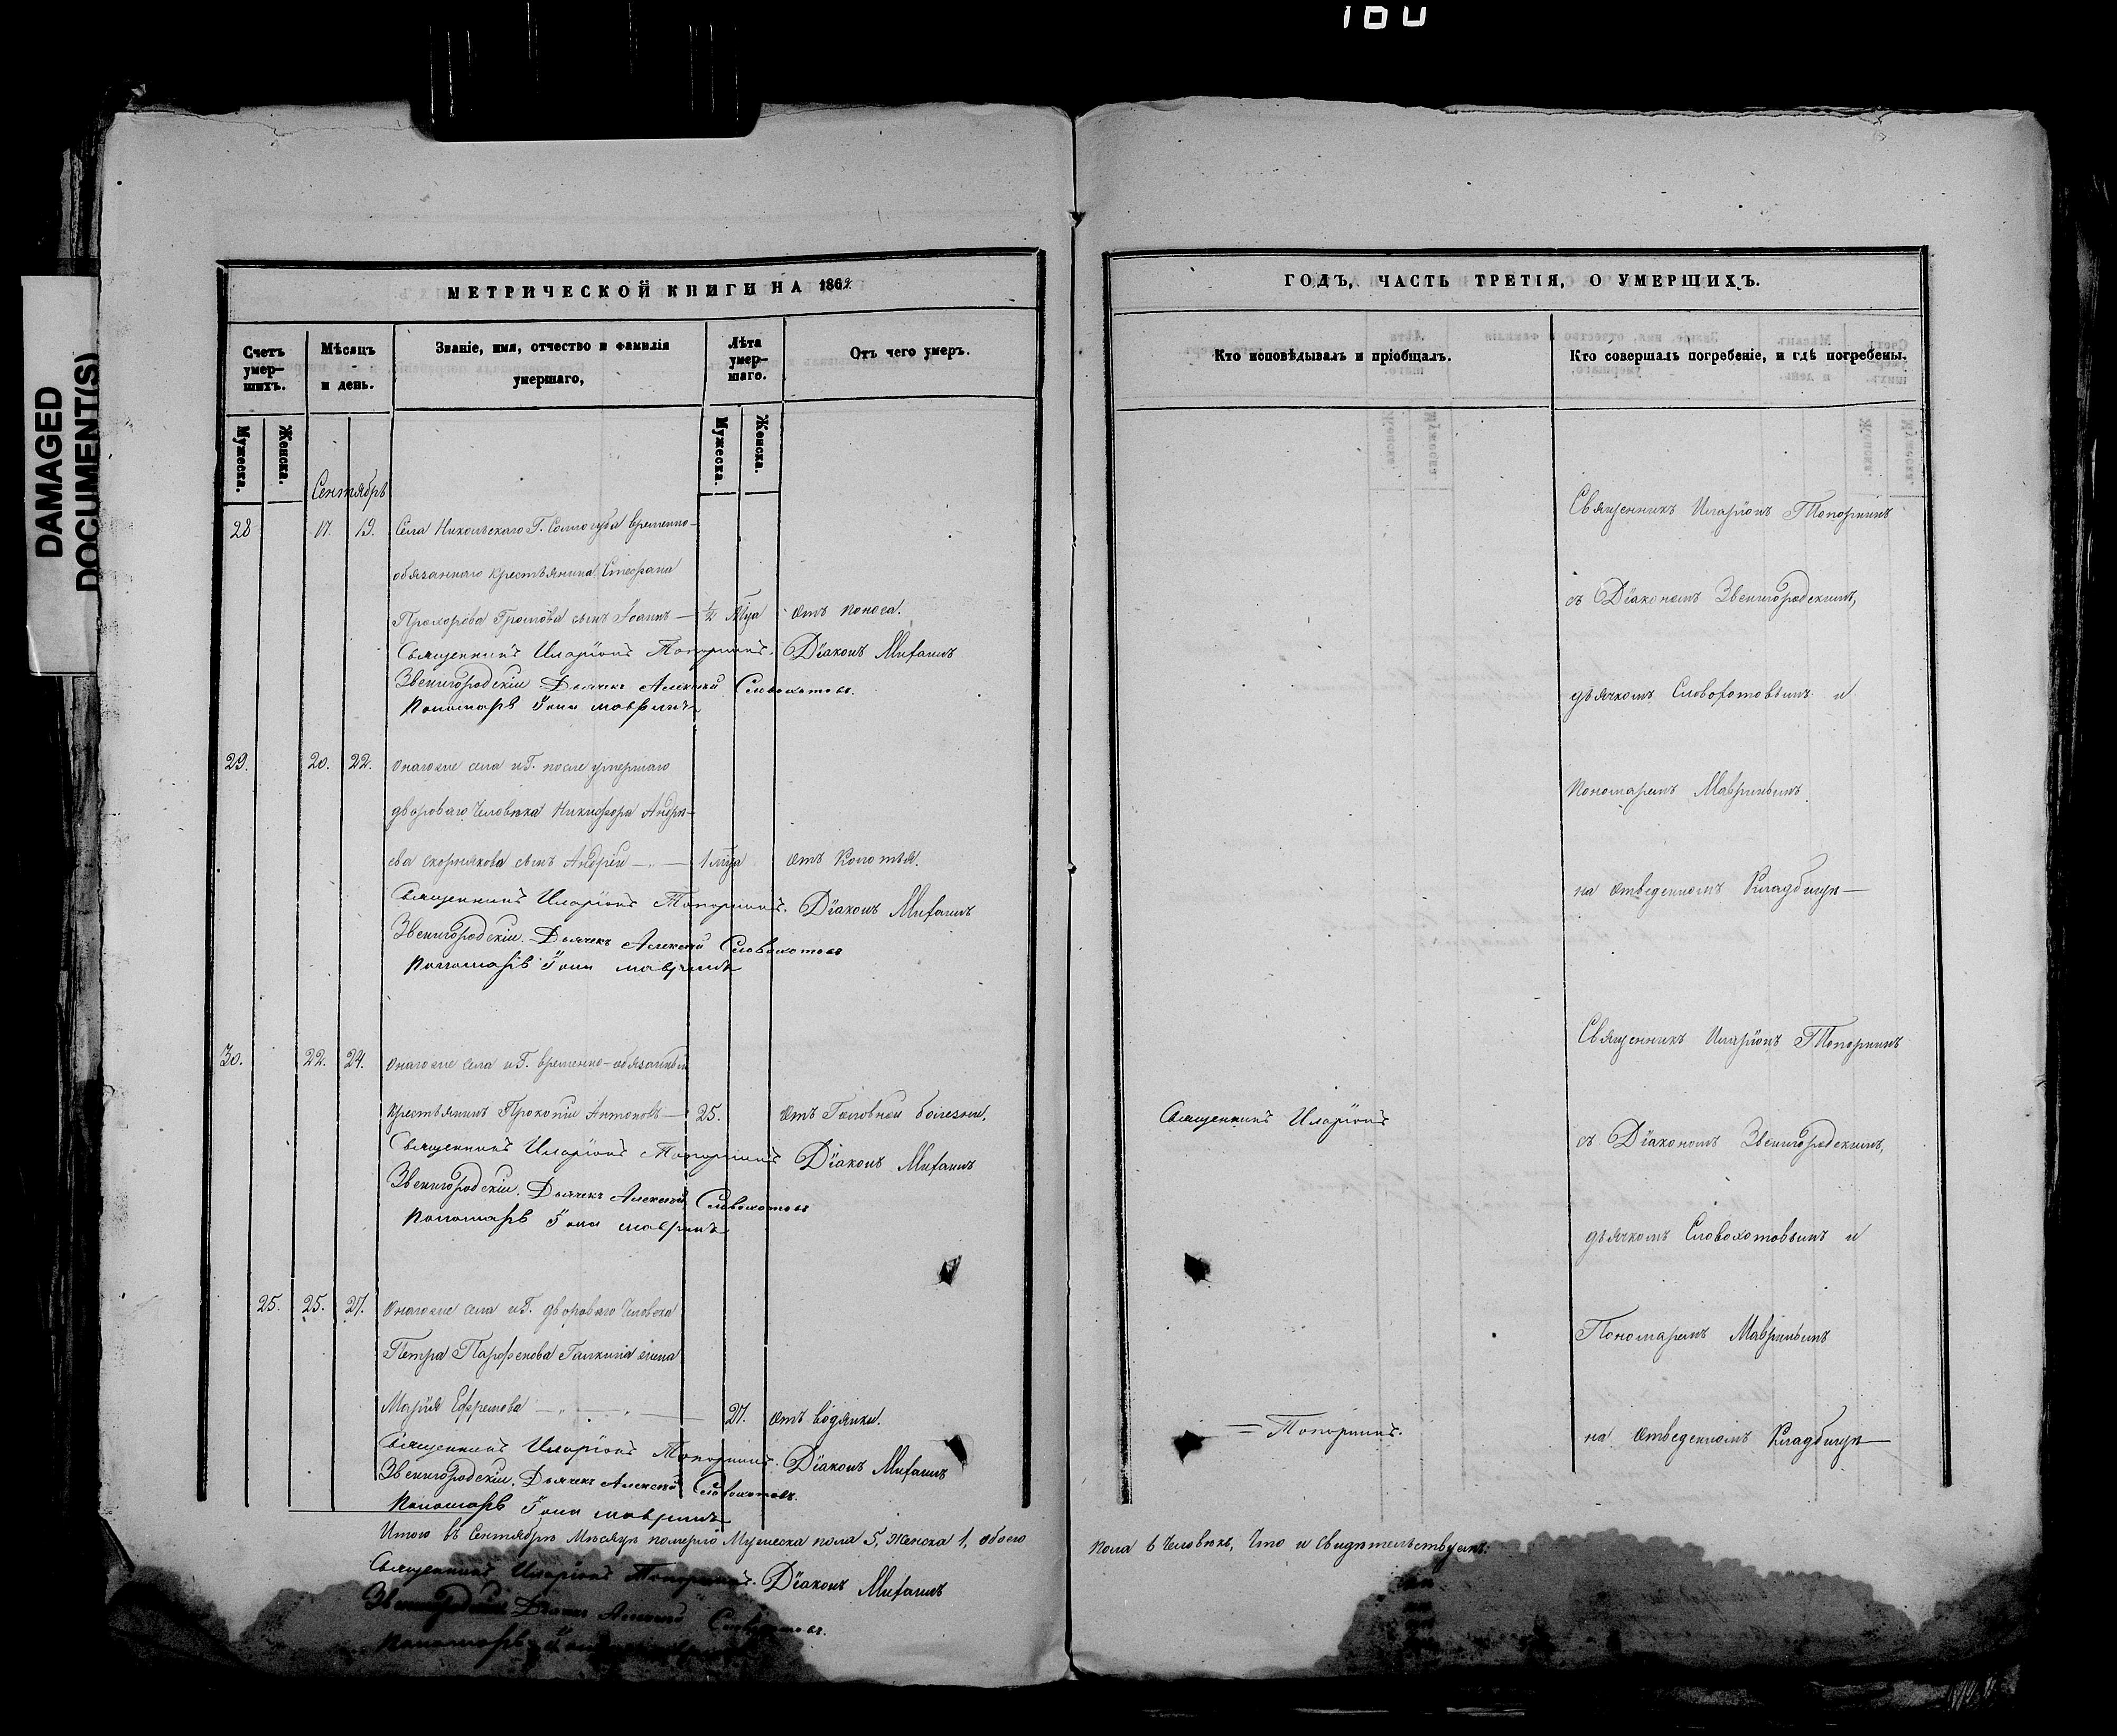 160
DAMAGED
DOCUMENT(S)
МЕТРИЧЕСКОЙ КНИГИ НА 1862
Счетъ умер-шихъ.
Мѣсяцъ и день.
Званіе, имя, отчество и фамилія умершаго,
Лѣта умер-шаго.
Отъ чего умеръ.
Мужеска.
Женска.
Мужеска.
Женска.
Сентябрь
28 17. 19. Села Никольскаго Г. временно-
обязаннаго крестьянина Стефана
Прохорова Громова сынъ Іоаннъ — ½ мца отъ поноса.
Священникъ Иларіонъ Топорнинъ. Діаконъ Михаилъ
Звенигородскій Дьячекъ Алексѣй Словохотовъ.
Пономарь Іона Мавринъ
29. 20. 22. Онагоже села и Г. после умершаго
двороваго человека Никифора Андре-
ева Скорнякова сынъ Андрей — „ — 1 мца отъ колотья.
Священникъ Иларіонъ Топорнинъ. Діаконъ Михаилъ
Звенигородскій. Дьячекъ Алексѣй Словохотовъ
Пономарь Іона Мавринъ
30. 22. 24. Онагоже села и Г. временно-обязанный
крестьянинъ Прокопій Антоновъ — 25. отъ головной болезни.
Священникъ Иларіонъ Топорнинъ Діаконъ Михаилъ
Звенигородскій. Дьячекъ Алексѣй Словохотовъ
Пономарь Іона Мавринъ
25. 25. 27. Онагоже села и Г. двороваго человека
Петра Парфенова Галкина жена
Марія Ефремова — „ — „ — 27. отъ водянки.
Священникъ Иларіонъ Топорнинъ. Діаконъ Михаилъ
Звенигородскій. Дьячекъ Алексѣй Словохотовъ.
Пономарь Іона Мавринъ
Итого въ Сентябрѣ мѣсяцѣ померло мужеска пола 5, женска 1, обоего
Священникъ Иларіонъ Топорнинъ. Діаконъ Михаилъ
Звенигородскій Дьячекъ Алексѣй Словохотовъ.
Пономарь Іона
ГОДЪ, ЧАСТЬ ТРЕТІЯ, О УМЕРШИХЪ.
Кто исповѣдывалъ и пріобщалъ.
Кто совершалъ погребеніе, и гдѣ погребены.
Священникъ Иларіонъ Топорнинъ
съ Діакономъ Звенигородскимъ,
дьячкомъ Словохотовымъ и
Пономаремъ Мавринымъ
на отведенномъ кладбищѣ —
Священникъ Иларіонъ Топорнинъ
Священникъ Иларіонъ
съ Діакономъ Звенигородскимъ,
дьячкомъ Словохотовымъ и
Пономаремъ Мавринымъ
= Топорнинъ.
на отведенномъ кладбищѣ —
пола 6 человѣкъ, что и свидѣтельствуемъ: